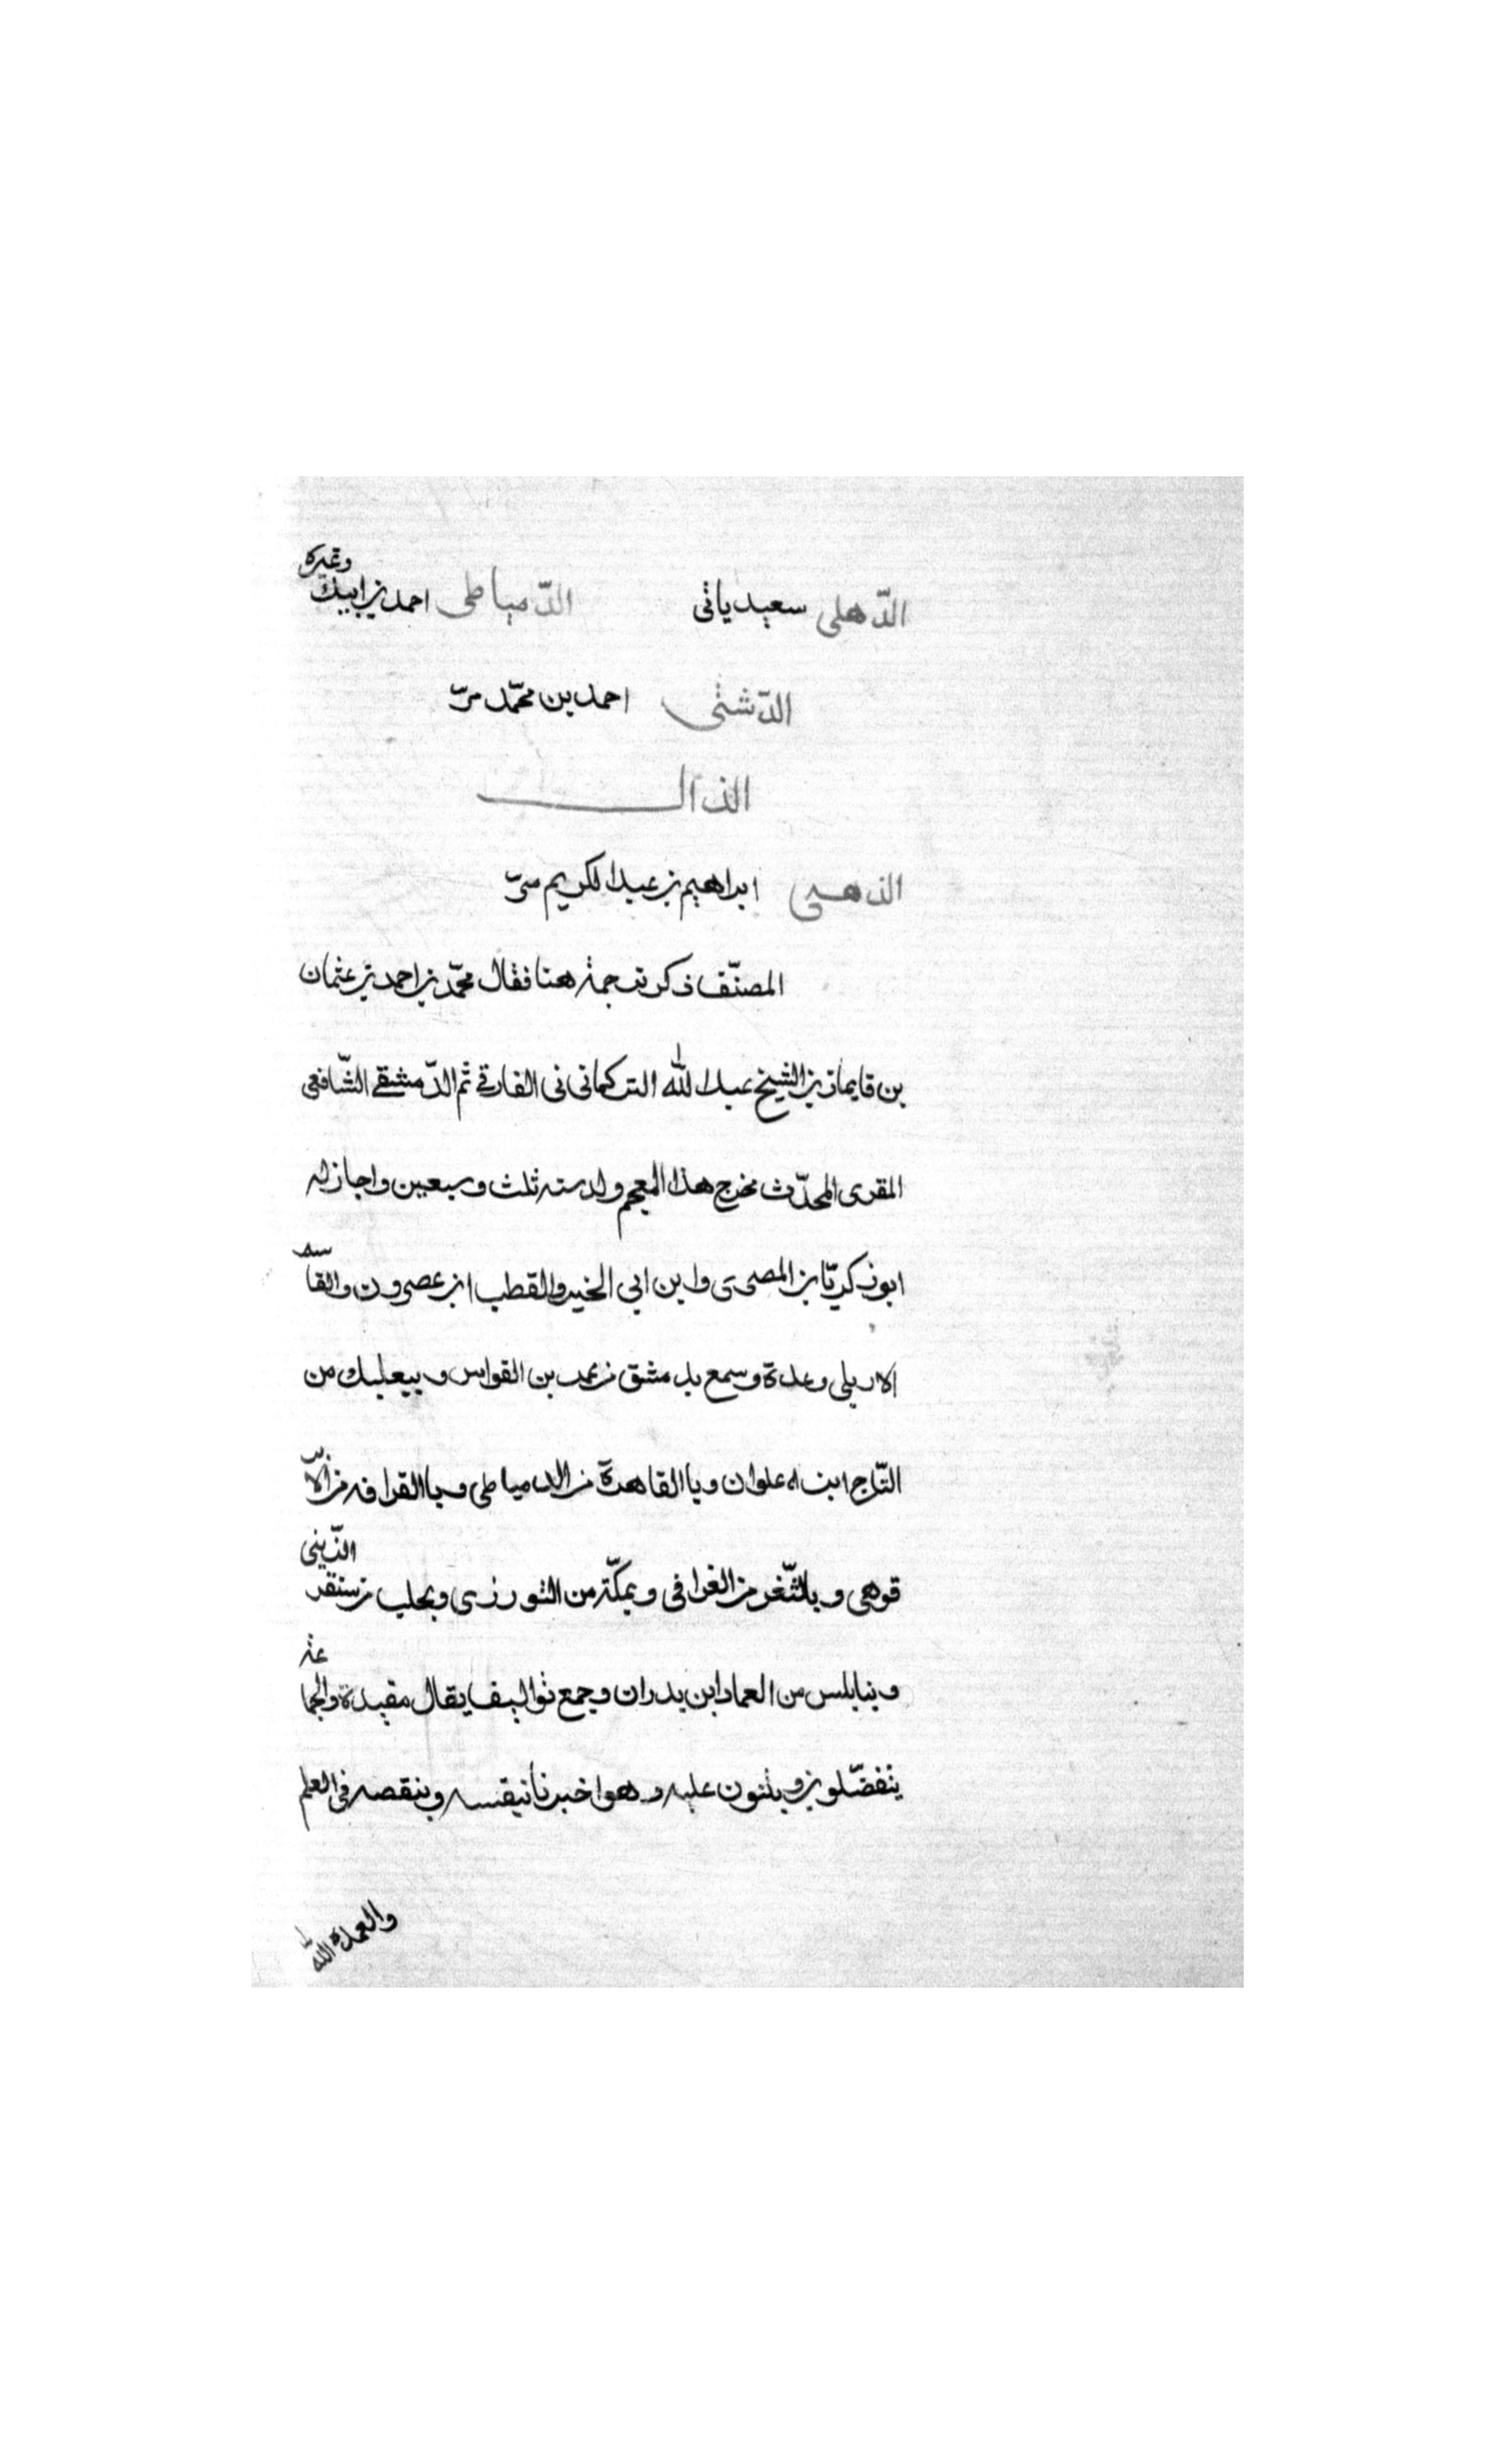 الدّهلى سعيد ياتى الدّمياطى احمد بن ابيك وغيره
الدّشتى احمد بن محمّد مرّ
الذال
الذهبى ابراهيم بن عبد الكريم مرّ
المصنّف ذكر ترجمته هنا فقال محمّد بن احمد بن عثمان
بن قايماز بن الشيخ عبد الله التركمانى الفارقى ثم الدّمشقى الشّافعى
المقرى المحدّث مخرج هذا المعجم ولد سنه ثلث وسبعين واجاز له
ابو زكريّا بن المصرى وابن ابي الخير والقطب ابن عصرون والقاسم
الاربلى وعدة وسمع بدمشق من عمر بن القواس وببعلبك من
التّاج ابن علوان وبا القاهرة من الدمياطى وبا القرافه من الابر
قوهى وبالثّغر من الغرافى وبمكّة من التوزرى وبحلب من سنقر الزّينى
وبنابلس من العماد ابن بدران وجمع تواليف يقال مفيدة والجماعة
يتفضّلون ويثنون عليه وهو اخبر بنفسه وبنقصه فى العلم
والعمل والله